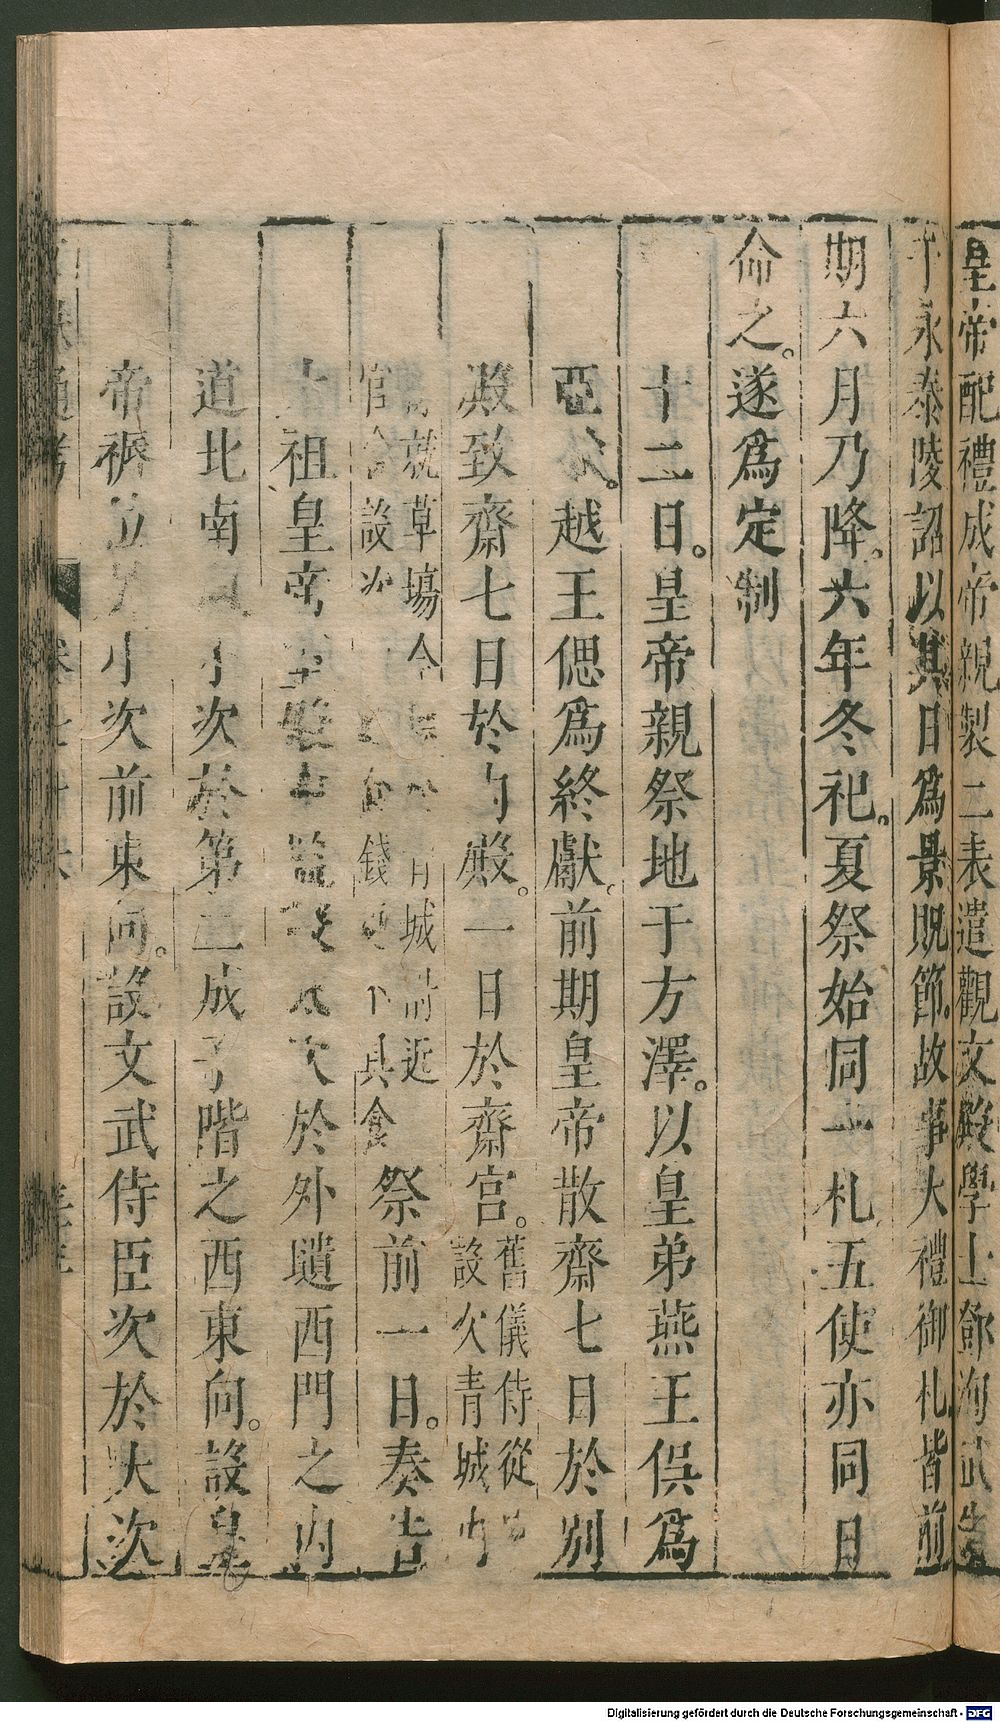 皇帝配禮成帝親製二表遣觀文殿學士鄧洵武
于永泰陵詔以其日爲景貺節。故事大禮御札皆前
期六月乃降。六年冬祀。夏祭始同一札五使亦同日
命之。遂爲定制
十二日。皇帝親祭地于方澤。以皇弟燕王俣爲
亞獻。越王偲爲終獻。前期皇帝散齋七日於別
殿致齋七日於內殿。一日於齋宮。舊儀侍從
設次青城內
就草場令 青城側近
官舍設次 錢 具食
祭前一日。奏告
太祖皇帝室 設大次於外壝西門之內
道北南向小次於第二成子階之西東向。設皇
帝褥位 小次前東向。設文武侍臣次於大次
通考
Digitalisierung gefördert durch die Deutsche Forschungsgemeinschaft - DFG